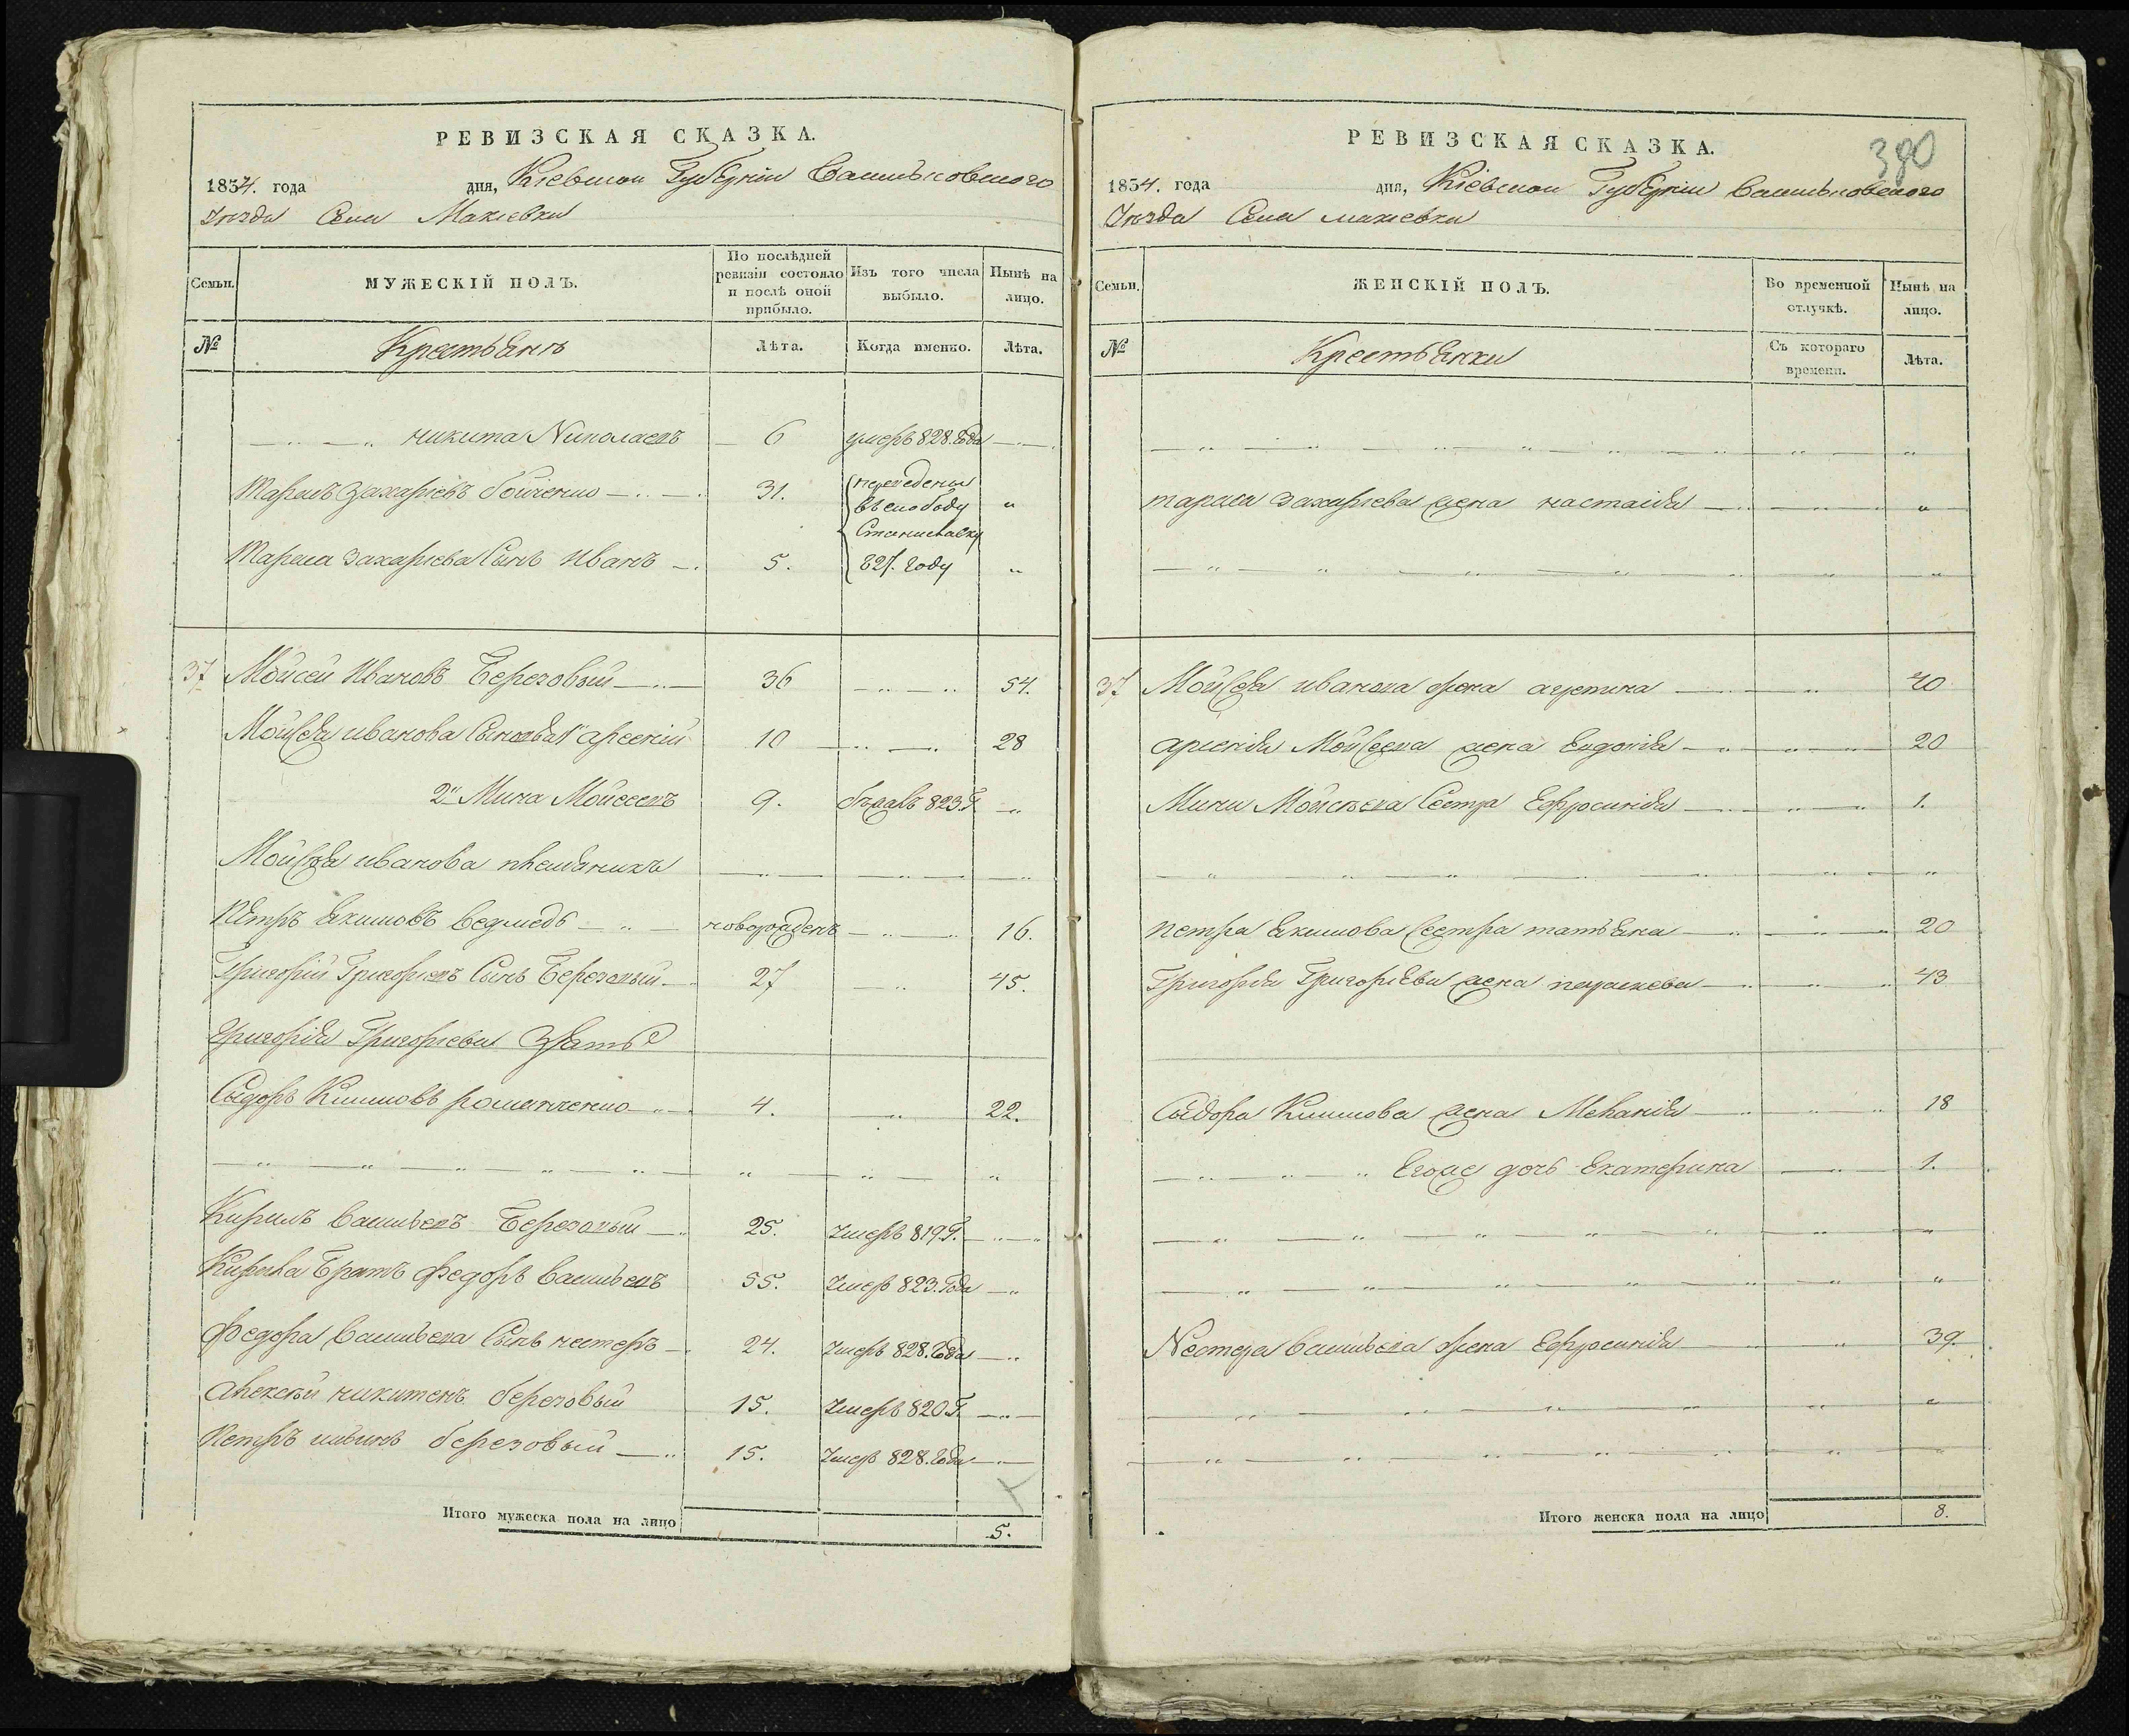 РЕВИЗСКАЯ СКАЗКА.
1834. года дня, Кіевской Губерніи Васильковского
Уезда Села Макіевки
Семьи.
МУЖЕСКІЙ ПОЛЪ.
По послѣдней ревизіи состояло и послѣ оной прибыло.
Изъ того числа выбыло.
Нынѣ на лицо.
№
Крестьянъ
Лѣта.
Когда именно.
Лѣта.
никита Николаевъ 6 умеръ 828. Года
Тарасъ Захаріевъ 31. переведены
въ слободу
Станиславку
Тараса Захаріева Сынъ Иванъ 5. 827. Году
37 Мойсей Ивановъ Березовый 36 54.
Мойсея иванова Сыновья 1й арсеній 10 28
2й Мина Мойсеевъ 9. бежалъ 823 Г.
Мойсея иванова племяникъ
Петръ Якимовъ ведмедь новорожденъ 16.
Григорій Григорьевъ Сынъ Березовый 27 45.
Григорія Григоріева Зять
Сидоръ Климовъ романченко 4. 22.
Кирилъ Васильевъ Березовый 25. Умеръ 819 Г.
Кирила Братъ Федоръ Васильевъ 55. Умеръ 823. Года
Федора Васильева Сынъ нестеръ 24. Умеръ 828. Года
Алексѣй никитенъ березовый 15. Умеръ 820 Г.
Петръ березовый 15. Умеръ 828. Года
Итого мужеска пола на лицо 5.
380
РЕВИЗСКАЯ СКАЗКА.
1834. года дня, Кіевской Губерніи Васильковского
Уезда Села макіевки
Семьи.
ЖЕНСКІЙ ПОЛЪ.
Во временной отлучкѣ.
Нынѣ на лицо.
№
Крестьянки
Съ котораго времени.
Лѣта.
тараса Захаріева жена настасія
37 Мойсея иванова жена агрепина 40
арсенія Мойсеева жена Евдокія 20
Мины Мойсѣева Сестра Ефросинія 1.
петра Якимова Сестра татьяна 20
Григорія Григоріева жена параскева 43
Сидора Климова жена Меланія 18
Егоже дочь Екатерина 1.
Нестера Васильева жена Ефросинія 39.
Итого женска пола на лицо 8.